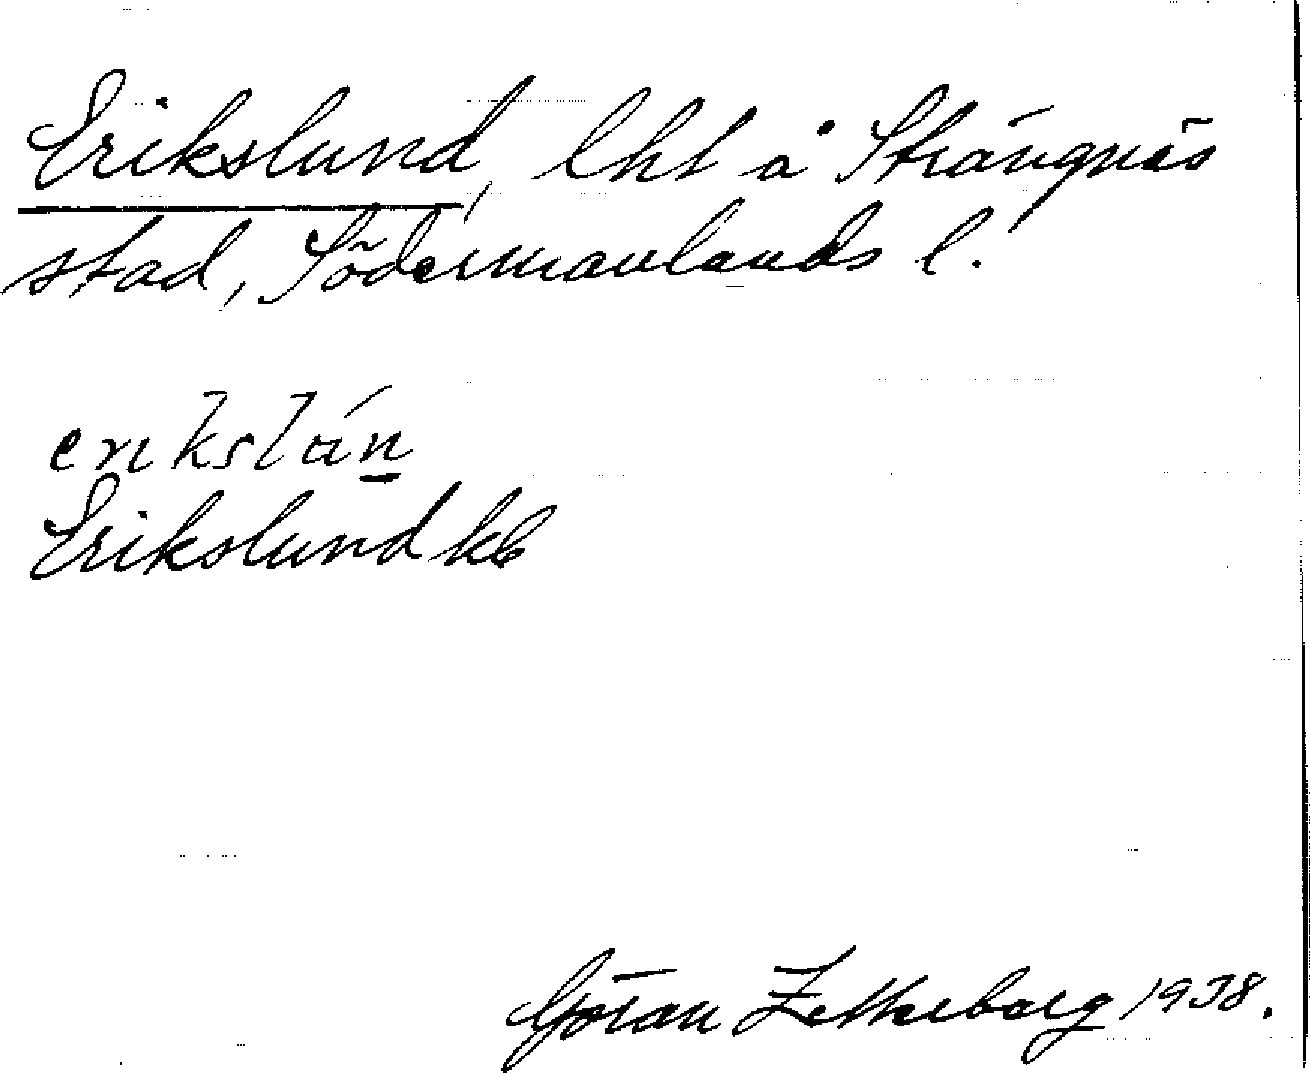 Erikslund, lht å Strängnäs
stad, Södermanlands l.
Erikslund kb
Göran Zetterborg 1938.